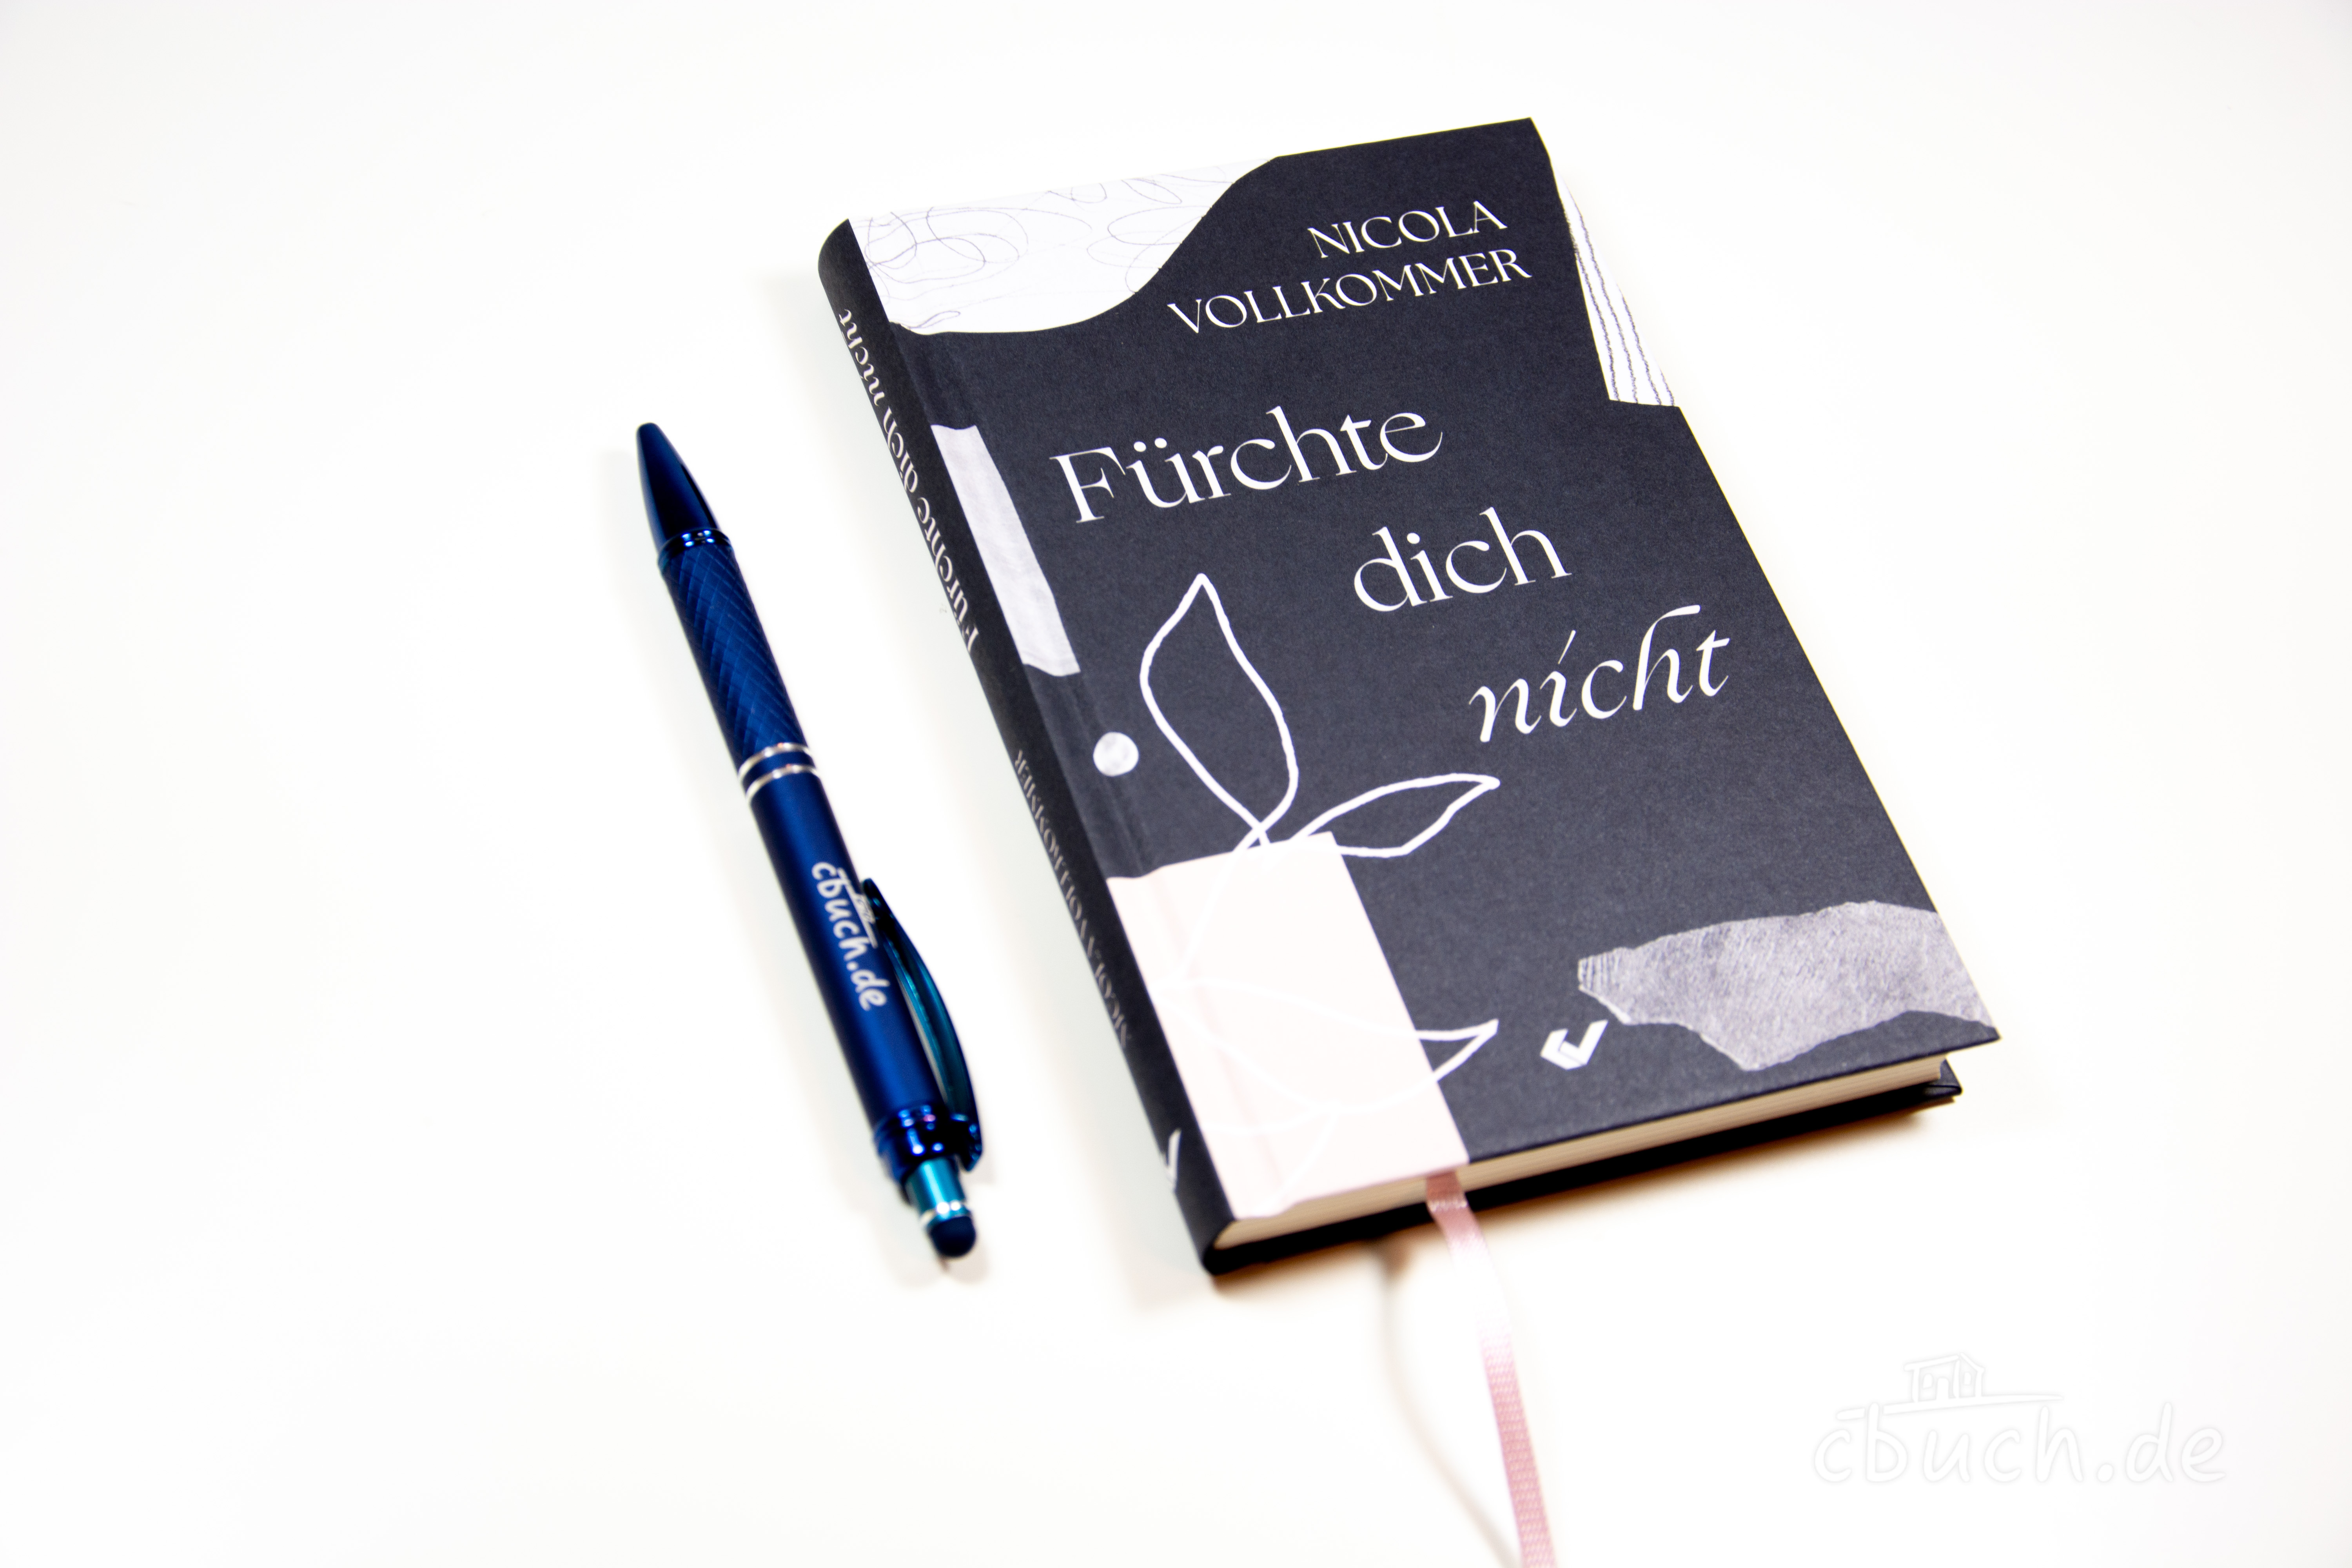 NICOLA
VOLLKOMMER
Fürchte
dich
nicht
Fürchte dich nicht
NICOLA VOLLKOMMER
cbuch.de
cbuch.de